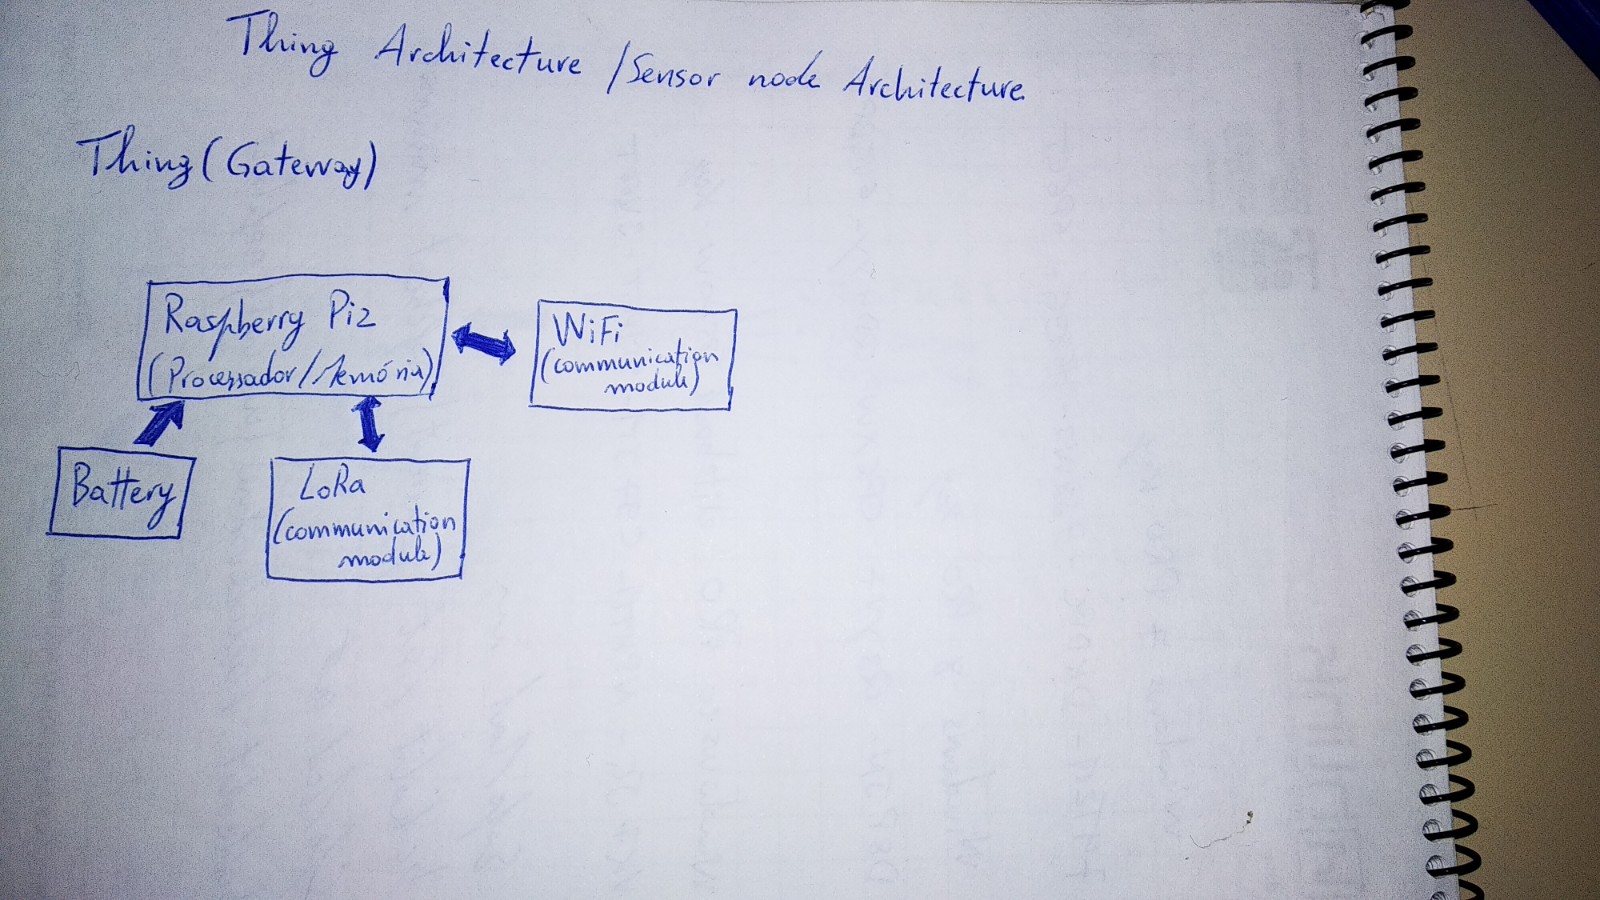 Thing Architecture / Sensor node Architecture
Thing (Gateway)
Raspberry Pi2
(Processador/Memória)
WiFi
(communication
module)
Battery
LoRa
(communication
module)